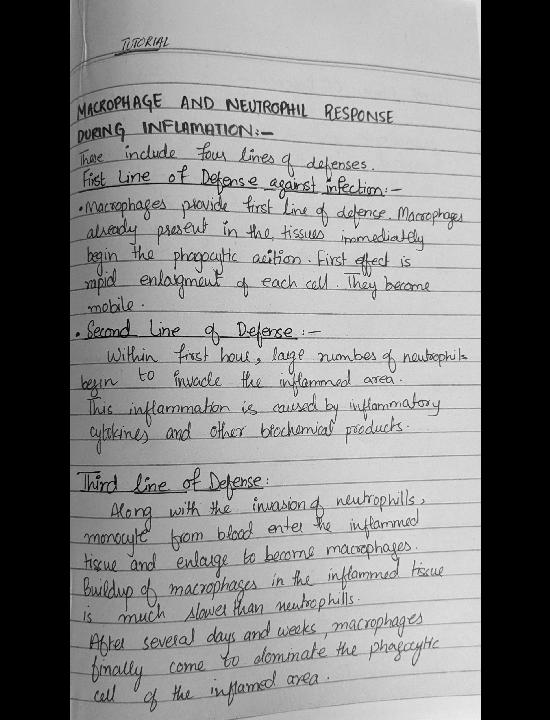 TUTORIAL
MACROPHAGE AND NEUTROPHIL RESPONSE
DURING INFLAMATION:-
These include four lines of defenses.
First Line of Defense against infection:-
• Macrophages provide first line of defence. Macrophages
already present in the tissues immediately
begin the phagocytic acition. First effect is
rapid enlargment of each cell. They become
mobile.
• Second Line of Defense:-
Within first hour, large number of neutrophils
begin to invade the inflammed area.
This inflammation is caused by inflammatory
cytokines and other biochemical products.
Third line of Defense:
Along with the invasion of neutrophills,
monocyte from blood enter the inflammed
tissue and enlarge to become macrophages.
Buildup of macrophages in the inflammed tissue
is much slower than neutrophills.
After several days and weeks, macrophages
finally come to dominate the phagocytic
cell of the inflamed area.